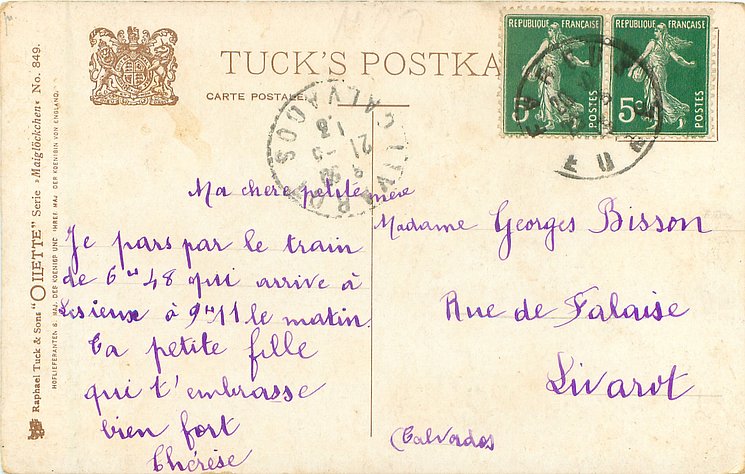 TUCK'S POSTKA
CARTE POSTALE.
REPUBLIQUE FRANÇAISE
5c
POSTES
REPUBLIQUE FRANÇAISE
5c
POSTES
LIVAROT
CALVADOS
EVREUX
EURE
Ma chère petite mère
Je pars par le train
de 6ʰ 48 qui arrive à
Lisieux à 9ʰ 11 le matin.
Ta petite fille
qui t'embrasse
bien fort
Thérèse
Madame Georges Bisson
Rue de Falaise
Livarot
(Calvados
Raphael Tuck & Sons "OILETTE" Serie »Maiglöckchen« No. 849.
HOFLIEFERANTEN S. MAJ. DER KOENIGS UND IHRER MAJ. DER KOENIGIN VON ENGLAND.